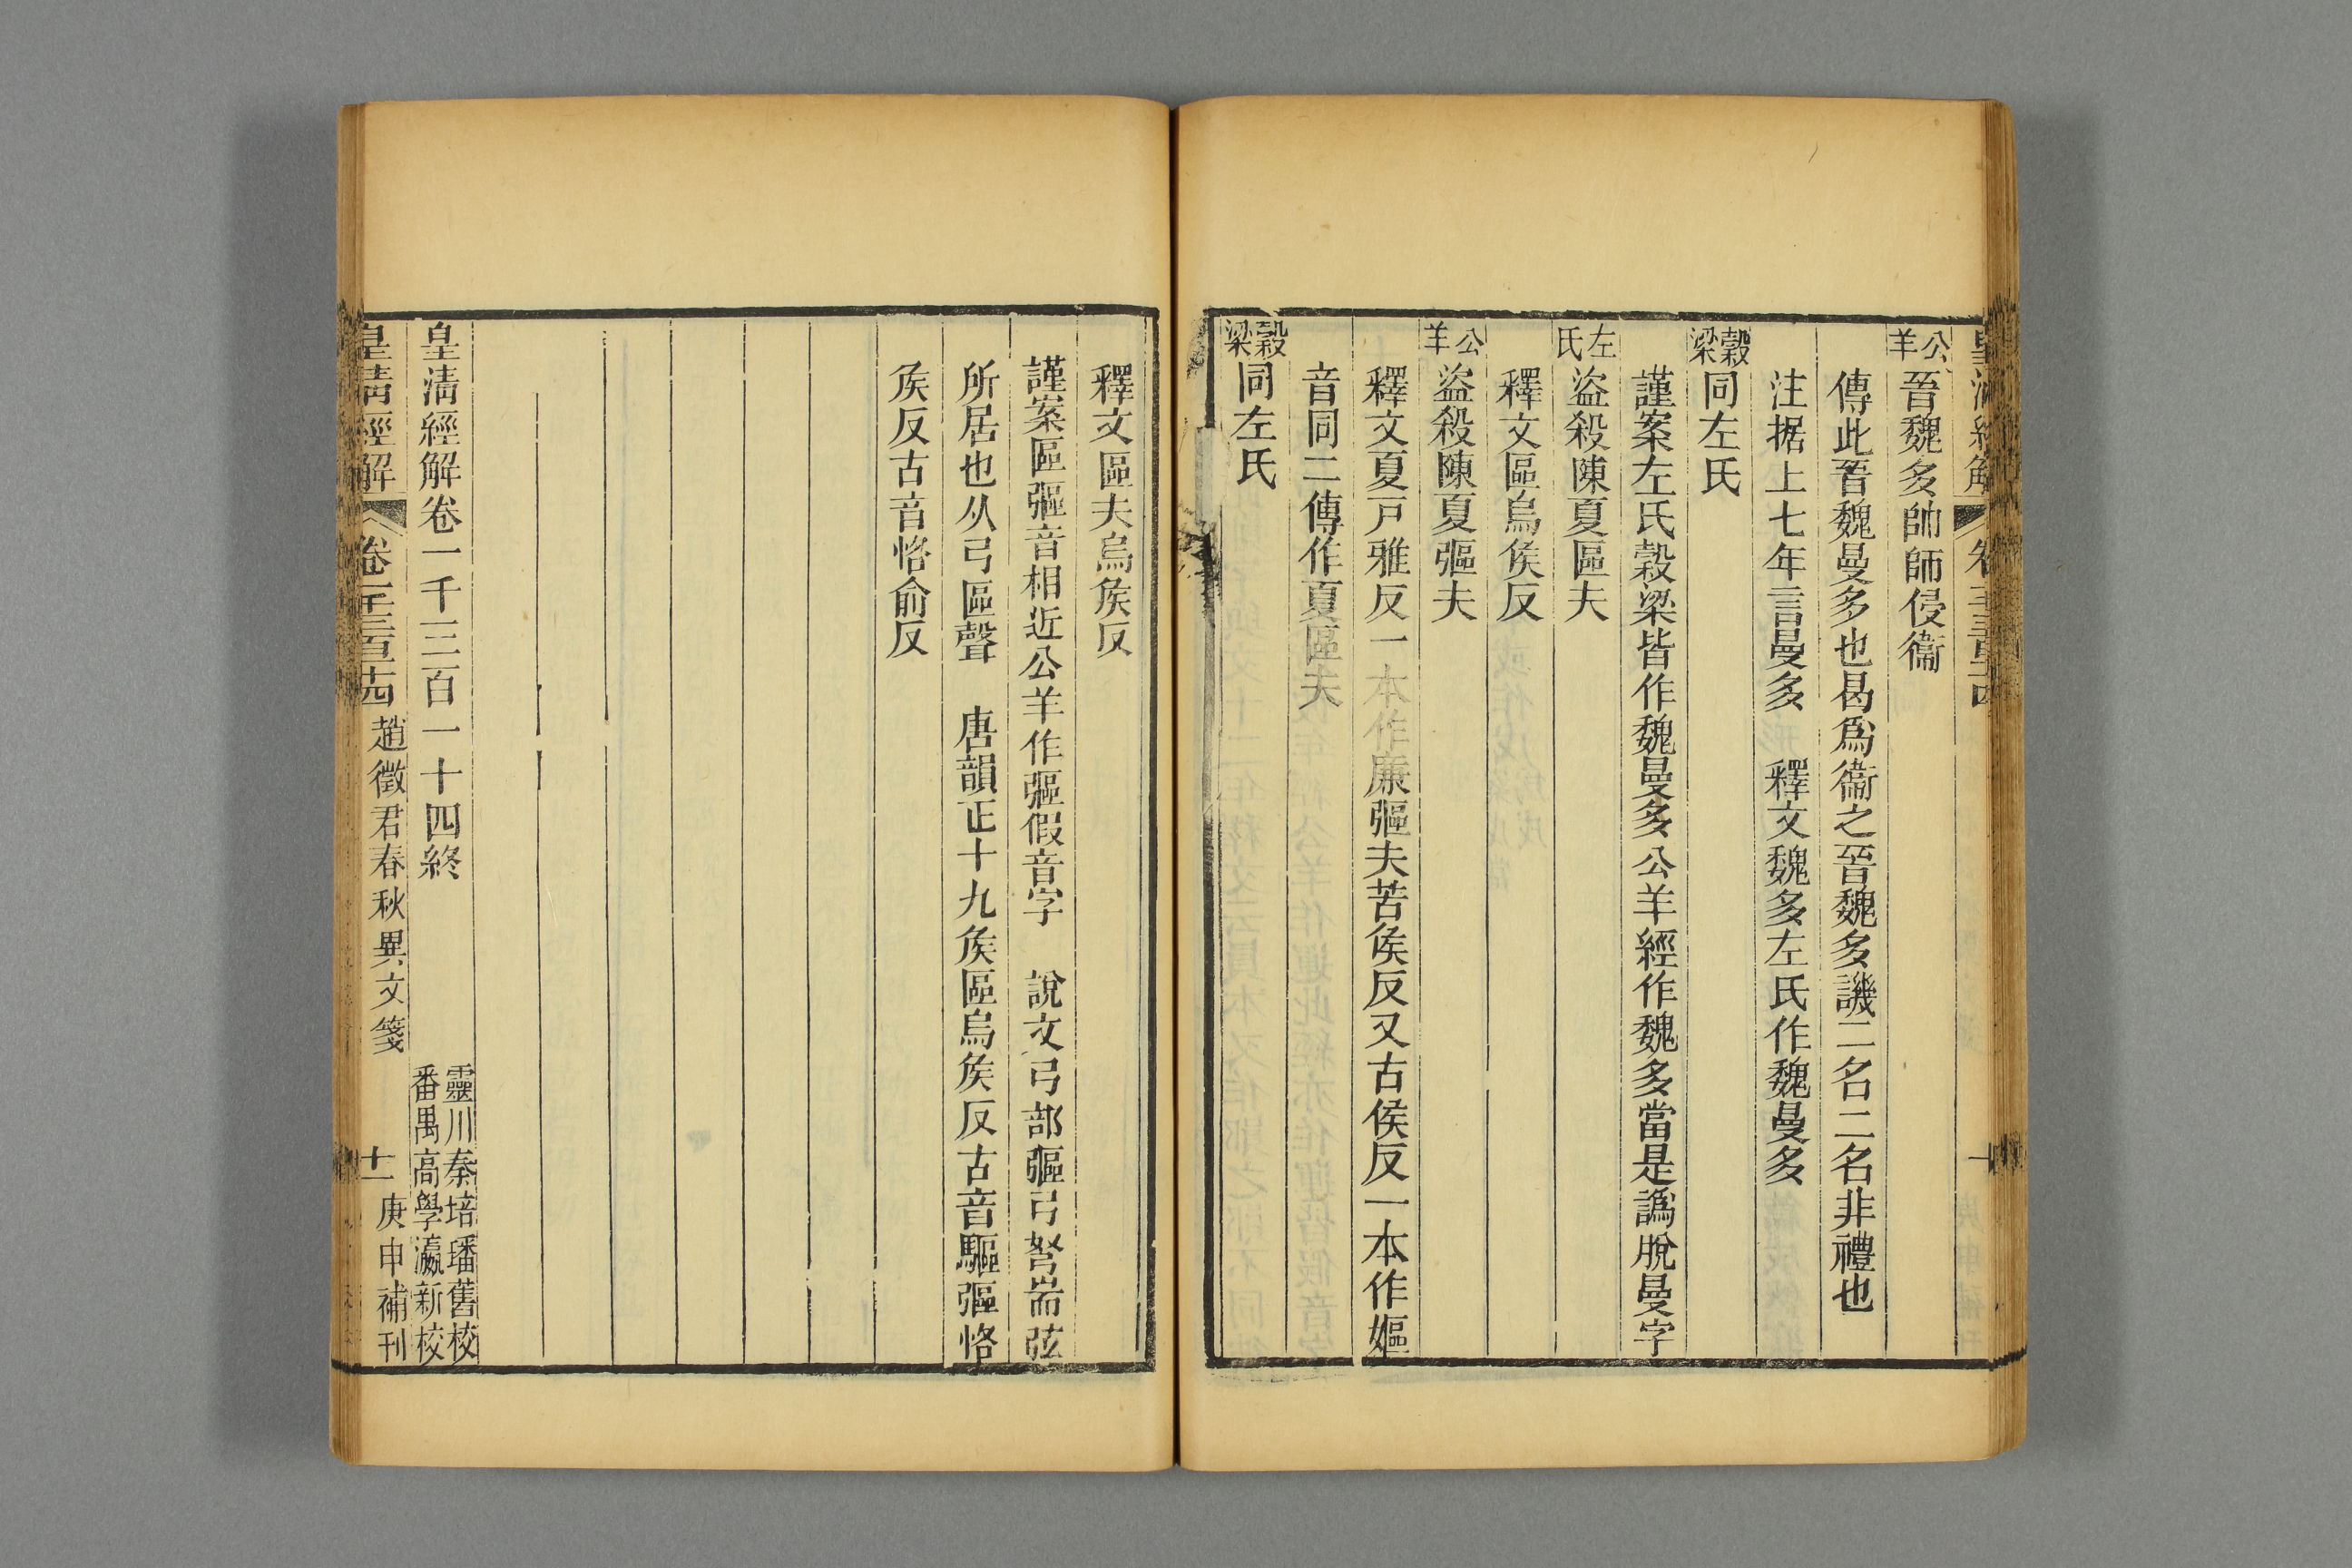 公羊晉魏多帥師侵衞
傳此晉魏曼多也曷爲衞之晉魏多譏二名二名非禮也
注据上七年言曼多 釋文魏多左氏作魏曼多
穀梁同左氏
謹案左氏穀梁皆作魏曼多公羊經作魏多當是譌脫曼字
左氏盜殺陳夏區夫
釋文區烏侯反
公羊盜殺陳夏彄夫
釋文夏戸雅反一本作廉彄夫苦侯反又古侯反一本作嫗
音同二傳作夏區夫
穀梁同左氏
釋文區夫烏侯反
謹案區彄音相近公羊作彄假音字 說文弓部彄弓弩耑弦
所居也从弓區聲 唐韻正十九侯區烏侯反古音驅彄恪
侯反古音恪俞反
皇淸經解卷一千三百一十四終
靈川秦培璠舊校
番禺高學瀛新校
皇淸經解 卷一千三百十四 趙徵君春秋異文箋 十一 庚申補刊